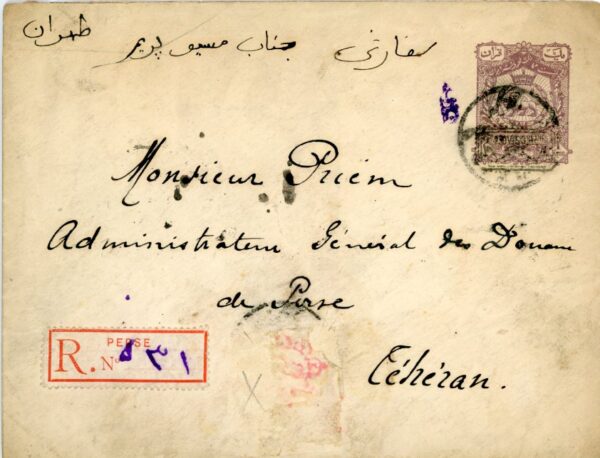 طهران
جناب مسیو پریم
سفارشی
یک قران
Monsieur Priem
Administrateur Général des Douanes
de Perse
Téhéran.
PERSE
R. No